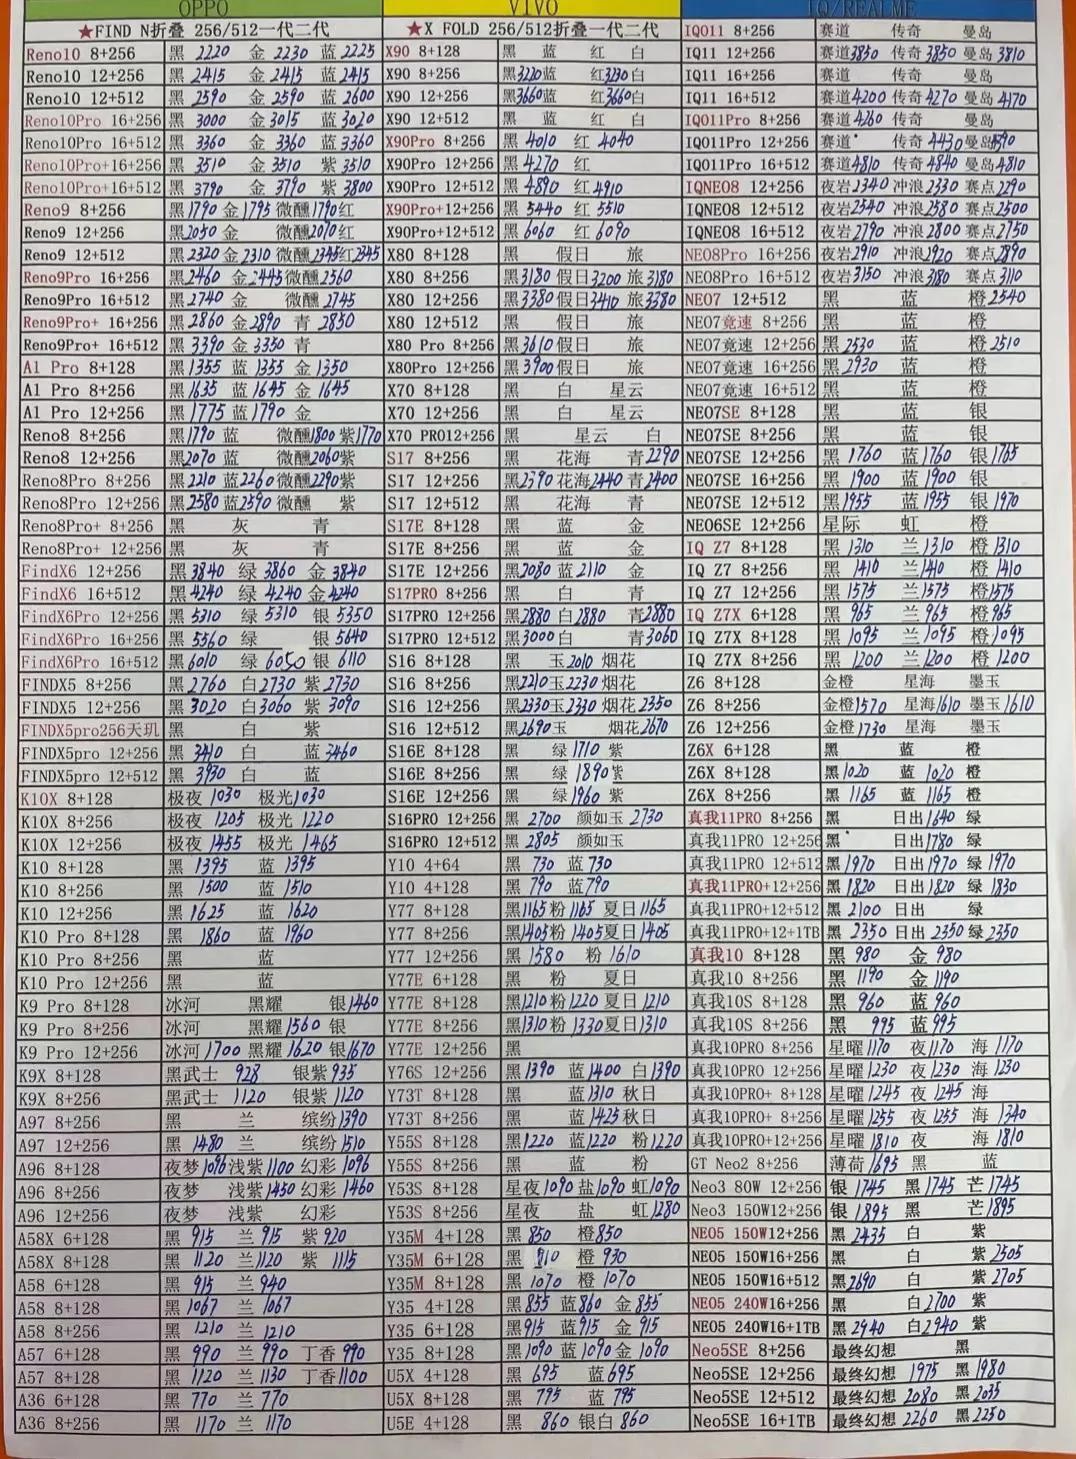 OPPO
★FIND N折叠 256/512一代二代
Reno10 8+256 黑 2220 金 2230 蓝 2225
Reno10 12+256 黑 2415 金 2415 蓝 2415
Reno10 12+512 黑 2590 金 2590 蓝 2600
Reno10Pro 16+256 黑 3000 金 3015 蓝 3020
Reno10Pro 16+512 黑 3360 金 3360 蓝 3360
Reno10Pro+16+256 黑 3510 金 3510 紫 3510
Reno10Pro+16+512 黑 3790 金 3790 紫 3800
Reno9 8+256 黑1790 金1795 微醺1790红
Reno9 12+256 黑2050 金 微醺2070红
Reno9 12+512 黑2320金2310 微醺2345红2345
Reno9Pro 16+256 黑2460 金2445微醺2560
Reno9Pro 16+512 黑2740 金 微醺2745
Reno9Pro+ 16+256 黑2860 金2890 青 2850
Reno9Pro+ 16+512 黑3390 金3350 青
A1 Pro 8+128 黑1355 蓝1355 金1350
A1 Pro 8+256 黑1635 蓝1645 金1645
A1 Pro 12+256 黑1775 蓝1790 金
Reno8 8+256 黑1790 蓝 微醺1800紫1770
Reno8 12+256 黑2070 蓝 微醺2060紫
Reno8Pro 8+256 黑2210 蓝2260微醺2290紫
Reno8Pro 12+256 黑2580蓝2590 微醺 紫
Reno8Pro+ 8+256 黑 灰 青
Reno8Pro+ 12+256 黑 灰 青
FindX6 12+256 黑3840 绿 3860 金 3840
FindX6 16+512 黑4240 绿 4240 金4240
FindX6Pro 12+256 黑 5310 绿 5310 银 5350
FindX6Pro 16+256 黑 5560 绿 银 5640
FindX6Pro 16+512 黑6010 绿 6050 银 6110
FINDX5 8+256 黑2760 白2730 紫2730
FINDX5 12+256 黑 3020 白3060 紫 3090
FINDX5pro256天玑 黑 白 紫
FINDX5pro 12+256 黑 3410 白 蓝3460
FINDX5pro 12+512 黑 3930 白 蓝
K10X 8+128 极夜 1030 极光1030
K10X 8+256 极夜 1205 极光1220
K10X 12+256 极夜 1455 极光1465
K10 8+128 黑 1395 蓝 1395
K10 8+256 黑 1500 蓝 1510
K10 12+256 黑 1625 蓝 1620
K10 Pro 8+128 黑 1860 蓝 1960
K10 Pro 8+256 黑 蓝
K10 Pro 12+256 黑 蓝
K9 Pro 8+128 冰河 黑耀 银1460
K9 Pro 8+256 冰河 黑耀1560 银
K9 Pro 12+256 冰河1700 黑耀1620 银1670
K9X 8+128 黑武士 928 银紫935
K9X 8+256 黑武士 1120 银紫1120
A97 8+256 黑 兰 缤纷1390
A97 12+256 黑 1480 兰 缤纷1510
A96 8+128 夜梦1096浅紫1100 幻彩 1096
A96 8+256 夜梦 浅紫1450 幻彩 1460
A96 12+256 夜梦 浅紫 幻彩
A58X 6+128 黑 915 兰 915 紫920
A58X 8+128 黑 1120 兰1120 紫 1115
A58 6+128 黑 915 兰940
A58 8+128 黑1067 兰1067
A58 8+256 黑 1210 兰1210
A57 6+128 黑 990 兰990 丁香990
A57 8+128 黑 1120 兰1130 丁香1100
A36 6+128 黑 770 兰770
A36 8+256 黑 1170 兰 1170
VIVO
★X FOLD 256/512折叠一代二代
X90 8+128 黑 蓝 红 白
X90 8+256 黑3220蓝 红3230白
X90 12+256 黑3660蓝 红3660白
X90 12+512 黑 蓝 红 白
X90Pro 8+256 黑 4010 红 4040
X90Pro 12+256 黑4270 红
X90Pro 12+512 黑 4890 红4910
X90Pro+12+256 黑 5440 红 5510
X90Pro+12+512 黑 6060 红 6090
X80 8+128 黑 假日 旅
X80 8+256 黑3180 假日3200 旅3180
X80 12+256 黑3380假日3410 旅3380
X80 12+512 黑 假日 旅
X80 Pro 8+256 黑3610假日 旅
X80Pro 12+256 黑3900假日 旅
X70 8+128 黑 白 星云
X70 12+256 黑 白 星云
X70 PRO12+256 黑 星云 白
S17 8+256 黑 花海 青2290
S17 12+256 黑2390花海2440青2400
S17 12+512 黑 花海 青
S17E 8+128 黑 蓝 金
S17E 8+256 黑 蓝 金
S17E 12+256 黑2080 蓝 2110 金
S17PRO 8+256 黑 白 青
S17PRO 12+256 黑2880 白2880 青2880
S17PRO 12+512 黑3000白 青3060
S16 8+128 黑 玉2010 烟花
S16 8+256 黑2210玉2230烟花
S16 12+256 黑2330玉2330 烟花2350
S16 12+512 黑2690玉 烟花2670
S16E 8+128 黑 绿1710 紫
S16E 8+256 黑 绿 1890紫
S16E 12+256 黑 绿1960 紫
S16PRO 12+256 黑 2700 颜如玉 2730
S16PRO 12+512 黑 2805 颜如玉
Y10 4+64 黑 730 蓝730
Y10 4+128 黑 790 蓝790
Y77 8+128 黑1165粉1165 夏日1165
Y77 8+256 黑1405粉1405夏日1405
Y77 12+256 黑 1580 粉1610
Y77E 6+128 黑 粉 夏日
Y77E 8+128 黑1210粉1220 夏日1210
Y77E 8+256 黑1310粉1330夏日1310
Y77E 12+256 黑
Y76S 12+256 黑1390 蓝1400 白1390
Y73T 8+128 黑 蓝1310 秋日
Y73T 8+256 黑 蓝1425秋日
Y55S 8+128 黑1220 蓝1220 粉1220
Y55S 8+256 黑 蓝 粉
Y53S 8+128 星夜1090盐1090虹1090
Y53S 8+256 星夜 盐 虹1280
Y35M 4+128 黑850 橙850
Y35M 6+128 黑 910 橙 930
Y35M 8+128 黑1070 橙 1070
Y35 4+128 黑855 蓝860 金855
Y35 6+128 黑915 蓝915 金 915
Y35 8+128 黑1090 蓝1090金1090
U5X 4+128 黑 695 蓝695
U5X 8+128 黑 795 蓝 795
U5E 4+128 黑 860 银白860
IQ/REALME
IQO11 8+256 赛道 传奇 曼岛
IQ11 12+256 赛道3850 传奇3850 曼岛 3810
IQ11 16+256 赛道 传奇 曼岛
IQ11 16+512 赛道4200 传奇4270 曼岛4170
IQO11Pro 8+256 赛道4260 传奇 曼岛
IQO11Pro 12+256 赛道 传奇 4430曼岛4390
IQO11Pro 16+512 赛道4810 传奇4840 曼岛4810
IQNEO8 12+256 夜岩2340冲浪2330 赛点2290
IQNEO8 12+512 夜岩2540 冲浪2580 赛点2500
IQNEO8 16+512 夜岩2790 冲浪2800赛点2750
NEO8Pro 16+256 夜岩2910 冲浪2920 赛点2890
NEO8Pro 16+512 夜岩3150 冲浪3180 赛点3110
NEO7 12+512 黑 蓝 橙2540
NEO7竞速 8+256 黑 蓝 橙
NEO7竞速 12+256 黑2530 蓝 橙2510
NEO7竞速 16+256 黑2930 蓝 橙
NEO7竞速 16+512 黑 蓝 橙
NEO7SE 8+128 黑 蓝 银
NEO7SE 8+256 黑 蓝 银
NEO7SE 12+256 黑 1760 蓝1760 银1765
NEO7SE 16+256 黑 1900 蓝1900 银
NEO7SE 12+512 黑1955 蓝1955 银1970
NEO6SE 12+256 星际 虹 橙
IQ Z7 8+128 黑 1310 兰1310 橙1310
IQ Z7 8+256 黑 1410 兰1410 橙 1410
IQ Z7 12+256 黑 1575 兰1575 橙1575
IQ Z7X 6+128 黑 965 兰 965 橙965
IQ Z7X 8+128 黑1095 兰1095 橙1095
IQ Z7X 8+256 黑 1200 兰1200 橙 1200
Z6 8+128 金橙 星海 墨玉
Z6 8+256 金橙1570 星海1610 墨玉1610
Z6 12+256 金橙1730 星海 墨玉
Z6X 6+128 黑 蓝 橙
Z6X 8+128 黑1020 蓝 1020 橙
Z6X 8+256 黑1165 蓝 1165 橙
真我11PRO 8+256 黑 日出1640 绿
真我11PRO 12+256 黑 日出1780 绿
真我11PRO 12+512 黑1970 日出1970 绿1970
真我11PRO+12+256 黑1820 日出1820 绿 1830
真我11PRO+12+512 黑 2100 日出 绿
真我11PRO+12+1TB 黑 2350 日出 2350绿2350
真我10 8+128 黑 980 金 980
真我10 8+256 黑 1190 金1190
真我10S 8+128 黑 960 蓝960
真我10S 8+256 黑 995 蓝995
真我10PRO 8+256 星曜1170 夜1170 海 1170
真我10PRO 12+256 星曜1230 夜1230 海 1230
真我10PRO+ 8+128 星曜1245 夜 1245 海
真我10PRO+ 8+256 星曜1255 夜1255 海 1340
真我10PRO+12+256 星曜1810 夜 海 1810
GT Neo2 8+256 薄荷1695 黑 蓝
Neo3 80W 12+256 银 1745 黑1745 芒1745
Neo3 150W12+256 银 1895 黑 芒1895
NEO5 150W12+256 黑 2435 白 紫
NEO5 150W16+256 黑 白 紫2505
NEO5 150W16+512 黑2690 白 紫2705
NEO5 240W16+256 黑 白2700 紫
NEO5 240W16+1TB 黑 2940 白2940 紫
Neo5SE 8+256 最终幻想 黑
Neo5SE 12+256 最终幻想 1975 黑1980
Neo5SE 12+512 最终幻想 2080 黑 2035
Neo5SE 16+1TB 最终幻想 2260 黑2250